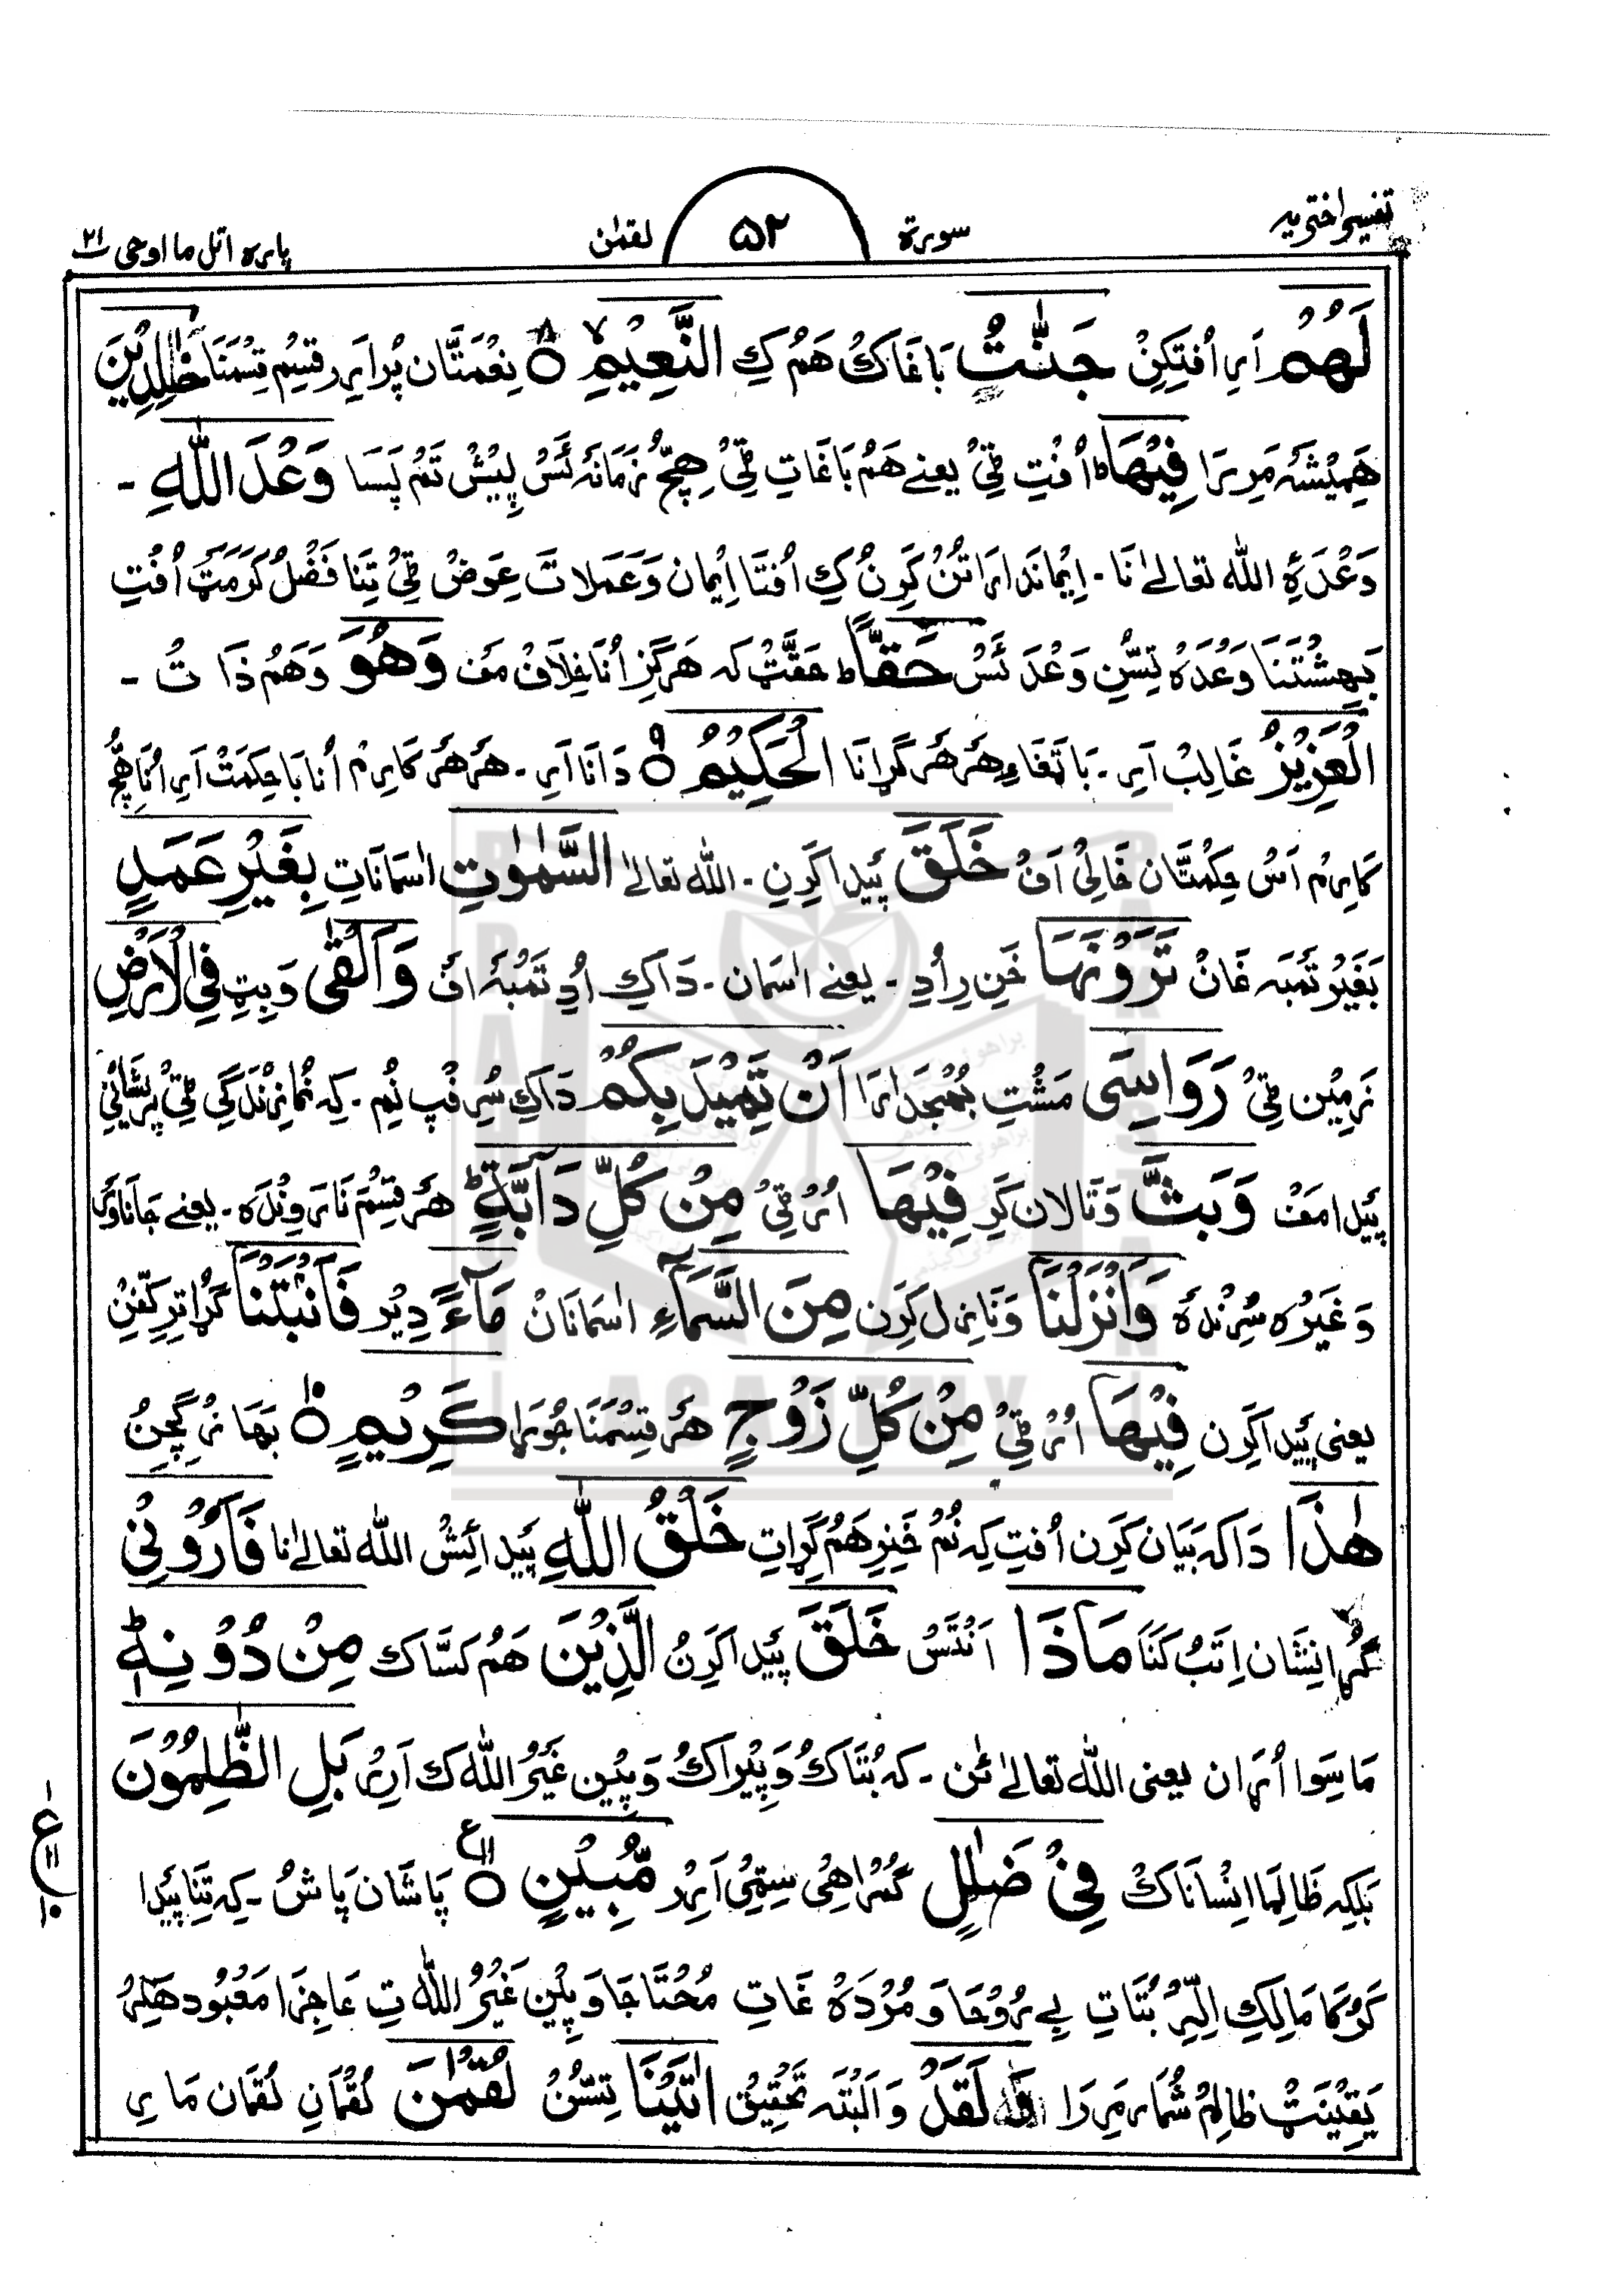 تفسیر اختریہ
سورة ۵۲ لقمٰن
پارہ اتل ما اوحی ۲۱
لَهُمْ اَیر اُفتِکِنْ جَنّٰتُ بَاغَاکُ هَمُ کِ النَّعِیْمِ ۝۸ نِعْمَتَّان پُر اَیر قِسِم قِسْمَنَا خٰلِدِیْنَ
هَمِیْشَہ مَرِرَا فِیْهَا ؕ اُفْتِ ٹِیْ یعنے هَمُ بَاغَاتِ ٹِیْ هِچُّ زَمَانَہ ئَسْ پِیْشْ تَمْ پَسَا وَعْدَ اللّٰهِ ۔
وَعْدَہِ اللّٰه تعالےٰ نَا ۔ اِیْمَاندَارَاتُنْ کَرِنُ کِ اُفتَا اِیْمان وَعَمَلاتَ عِوَضْ ٹِیْ تِنَا فَضْلُ کَرَمَٹ اُفْتِ
بَهِشْتَنَا وَعْدَہ تِسُّنِ وَعْدَ ئَسْ حَقًّا ؕ حَقَّٹ کہ هَرگِز اُنَا خِلَافْ مَف وَهُوَ وَهَمُ ذَا تُ ۔
الْعَزِیْزُ غَالِبْ اَیر ۔ بَا تِّفَاءِ هَر هَر گِرَانَا الْحَکِیْمُ ۝۹ دَانَا اَیر ۔ هَر هَر کَارِم اُنَا بَا حِکمَتْ اَیر اُنَا هِچُّ
کَارِم اَسُ حِکمَتَّان خَالِیْ اَفْ خَلَقَ پَیدا کَرِنِ ۔ اللّٰه تعالےٰ السَّمٰوٰتِ اٰسمَانَاتِ بِغَیْرِ عَمَدٍ
بَغَیْر تَمْبَہ غَانْ تَرَوْنَهَا خَنِ رِ اُدِ ۔ یعنے اٰسمَان ۔ دَاکِ اُدِ تَمْبَہ اَف وَاَلْقٰی وَبِٹِ فِی الْاَرْضِ
زَمِیْن ٹِیْ رَوَاسِیَ مَشْتِ اَنْ تَمِیْدَ بِکُمْ دَاکِ سُرِفْپ نُمِ ۔ کہ نُمَا زِنْدَگِی ٹِیْ پَرِیْشَانِیْ
پَیدا مَفْ وَبَثَّ وَتَالان کَر فِیْهَا اُر ٹِیْ مِنْ کُلِّ دَآبَّةٍ ؕ هَر قِسْمَ نَا ۔ یعنے جَانَاوَر
وَغَیْرُہ وَاَنْزَلْنَا وَنَازِل کَرِن مِنَ السَّمَآءِ اٰسمَانَانْ مَآءً دِیْر فَاَنْۢبَتْنَا گُڑَا
یعنی پَیدا کَرِن فِیْهَا اُر ٹِیْ مِنْ کُلِّ زَوْجٍ هَر قِسْمَنَا جُوڑَا کَرِیْمٍ ۝۱۰ بَهَا
هٰذَا دَاکہ بَیَان کَرِن اُفتِ کہ نُمْ خَنِرِ هَمُ گِڑَاتِ خَلْقُ اللّٰهِ پَیدائِشْ اللّٰه تعالےٰ نا فَاَرُوْنِیْ
گُڑا نِشَان اِتَبُ کَنَا مَاذَا اَنْتَسْ خَلَقَ پَیدا کَرِنُ الَّذِیْنَ هَمُ کَسَّاک مِنْ دُوْنِهٖ ؕ
مَاسِوا اُرَان یعنی اللّٰه تعالےٰ ئَن ۔ کہ بُتَّاکُ وَپِیْرَاکُ وَپِیْن غَیْرُ اللّٰه ک اَرِر بَلِ الظّٰلِمُوْنَ
بَلکِہ ظَالِمَا اِنْسانَاکْ فِیْ ضَلٰلٍ گُمْرَاهِیْ سِیْٹِیْ اَرِر مُّبِیْنٍ ۝۱۱ پَاشَان پَاشُ ۔ کہ تِنَا پَیدا
کَرُوکَا مَالِکِ اِلِّر بُتَّاتِ بے رُوْحَا وَمُرْدَہ غَاتِ مُحْتَاجَا وَپِیْن غَیْرُ اللّٰه تِ عَاجِزَا مَعْبُود هَلِر
یَقِیْنَٹ ظالِمْ شُمَار مَرِرَا وَلَقَدْ وَاَلبَتَہ تَحْقِیْق اٰتَیْنَا تِسُّنْ لُقْمٰنَ لُقْمَانِ لُقمَان مَارِ
ع
۱۱
۱۰
BRAHUI ACADEMY PAKISTAN